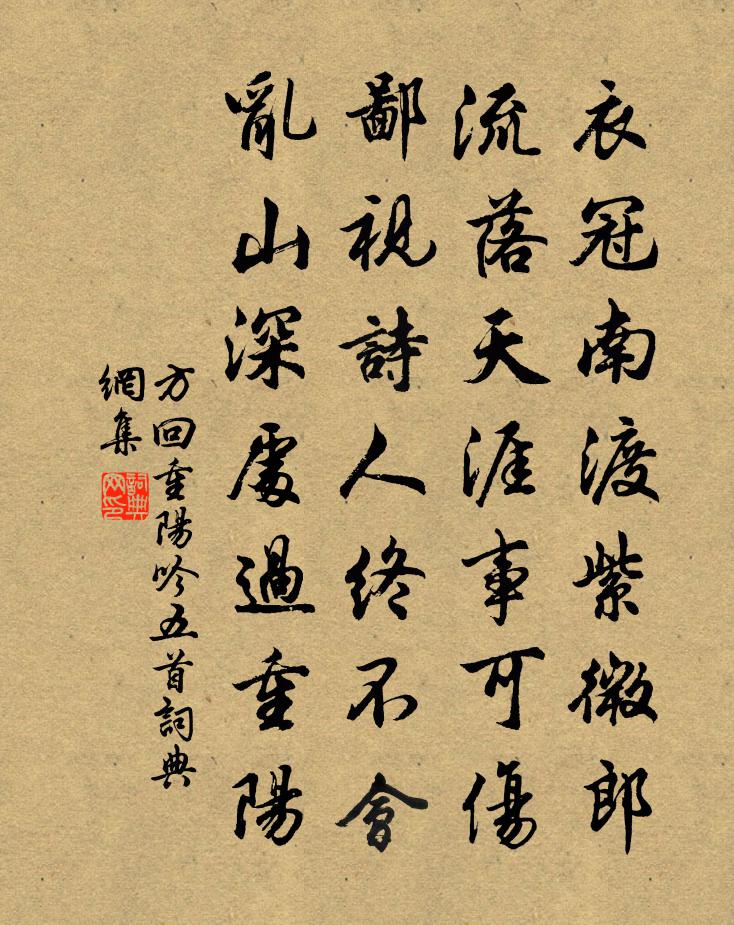 衣冠南渡紫微郎
流落天涯事可傷
鄙視詩人終不會
亂山深處過重陽
方回重陽吟五首詞典
網集
詞典
网印